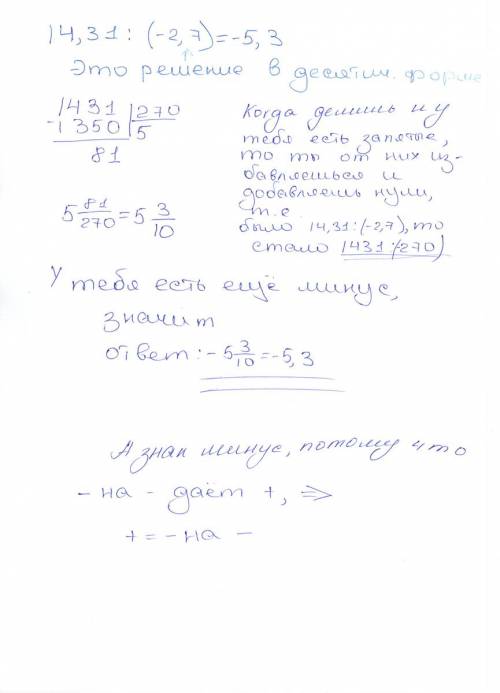 14,31 : (-2,7)=-5,3
Это решение в десятич. форме
1431 | 270
-1350 | 5
81
5 81/270 = 5 3/10
Когда делишь и у
тебя есть запятые,
то ты от них из-
бавляешься и
добавляешь нули,
т.е
было 14,31:(-2,7), то
стало 1431:(270)
У тебя есть ещё минус,
значит
ответ: - 5 3/10 = -5,3
А знак минус, потому что
- на - даёт +, =>
+ = - на -